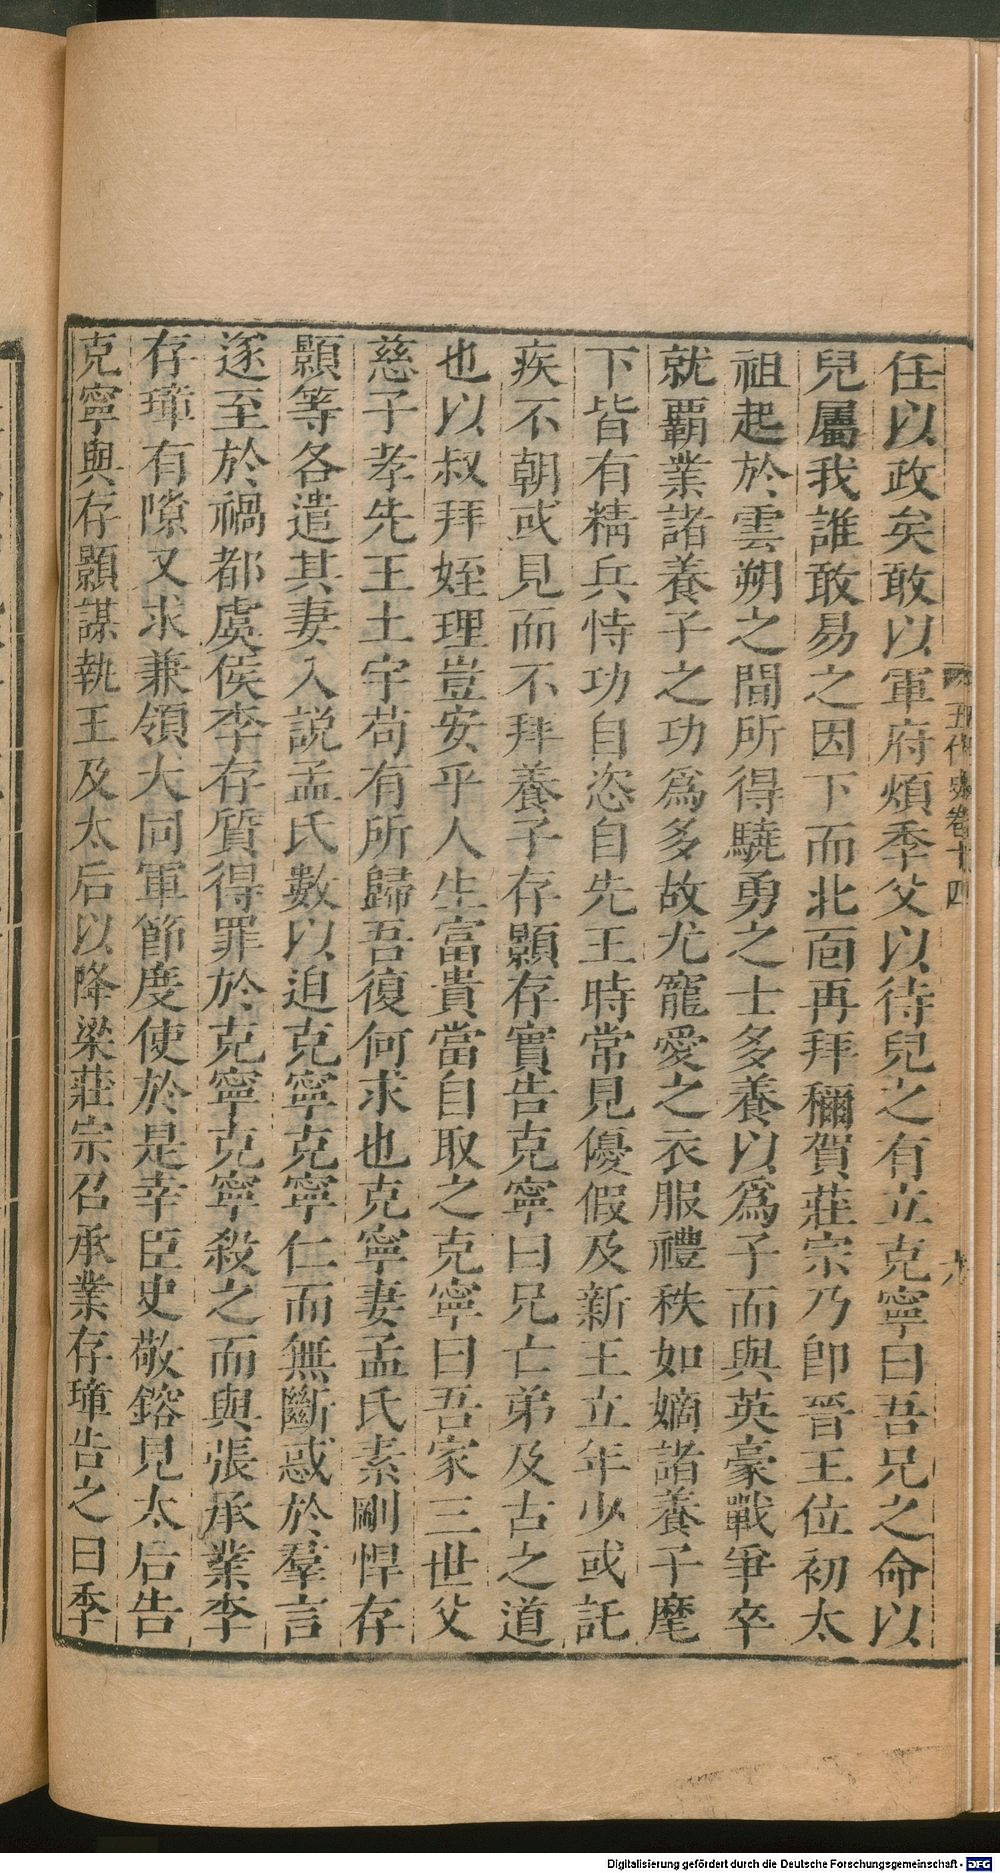 任以政矣敢以軍府煩季父以待兒之有立克寧曰吾兄之命以
兒屬我誰敢易之因下而北面再拜稱賀莊宗乃卽晉王位初太
祖起於雲朔之間所得驍勇之士多養以爲子而與英豪戰爭卒
就霸業諸養子之功爲多故尤寵愛之衣服禮秩如嫡諸養子麾
下皆有精兵恃功自恣自先王時常見優假及新王立年少或託
疾不朝或見而不拜養子存顥存實告克寧曰兄亡弟及古之道
也以叔拜姪理豈安乎人生富貴當自取之克寧曰吾家三世父
慈子孝先王土宇苟有所歸吾復何求也克寧妻孟氏素剛悍存
顥等各遣其妻入說孟氏數以迫克寧克寧仁而無斷惑於羣言
遂至於禍都虞侯李存質得罪於克寧克寧殺之而與張承業李
存璋有隙又求兼領大同軍節度使於是幸臣史敬鎔見太后告
克寧與存顥謀執王及太后以降梁莊宗召承業存璋告之曰季
五代史卷十四
六
Digitalisierung gefördert durch die Deutsche Forschungsgemeinschaft - DFG